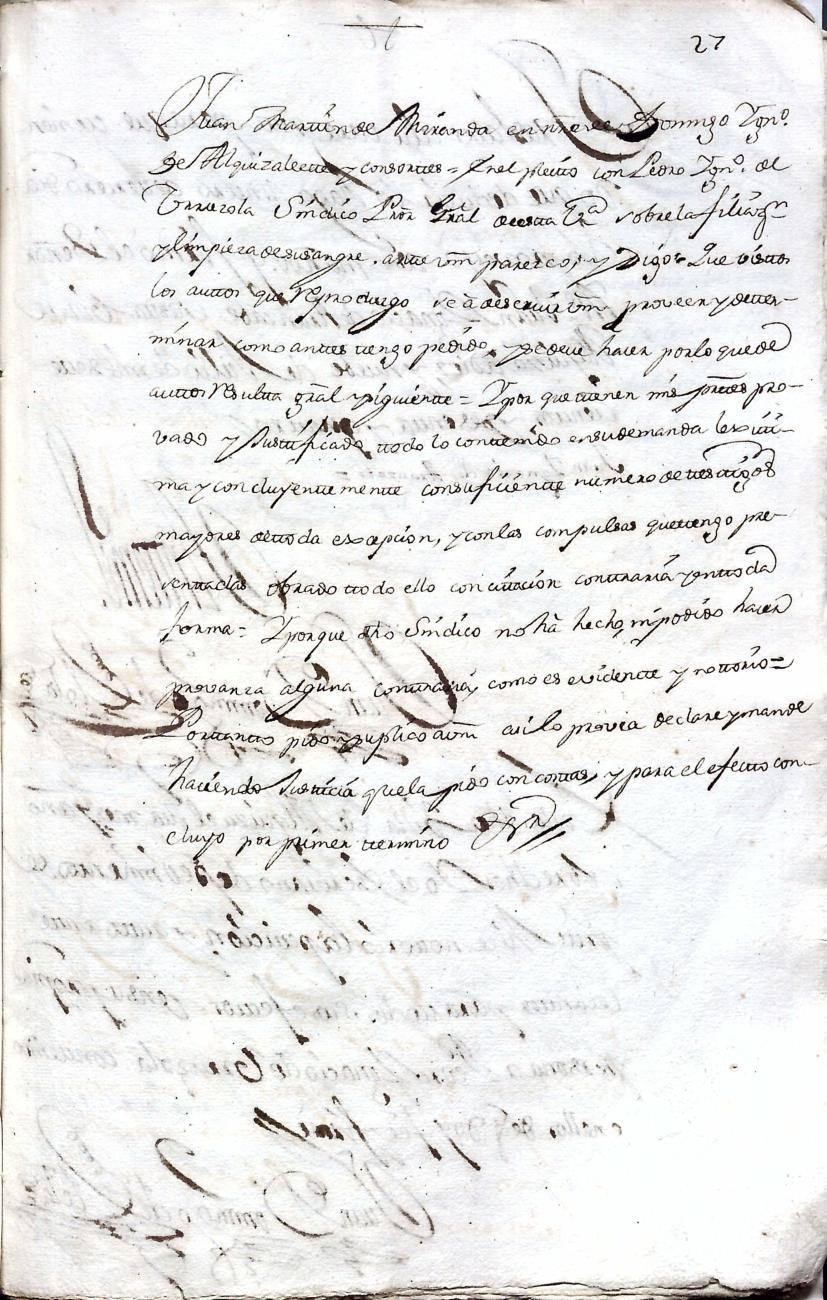 27
Juan Martin de Miranda en nre de Domingo Ygn.º
de Alquizalette y consortes = En el pleito con Pedro Ygn.º de
Urruzola Sindico Pror Gral de esta Vª sobre la filiazn
y limpieza de su sangre. ante vm parezco, y Digo = Que vistos
los auttos que reproduzgo se a de servir vm proveer y detter-
minar como antes tengo pedido, y se deve hacer por lo que de
auttos resulta gral y siguiente = Y por que tienen mis parttes pro-
vado y Justtificado ttodo lo contenido en su demanda lexitti-
ma y concluyentemente con suficiente numero de testtigos
mayores de ttoda excepcion, y con las compulsas que tengo pre-
sentadas obrado ttodo ello con cittacion contraria y en ttoda
forma = Y porque dho Sindico no ha hecho, ni podido hacer
provanza alguna contraria, como es evidentte y nottorio =
Por tanto pido y suplico a vm asi lo provea declare y mande
haciendo Justticia que la pido con costas, y para el efectto con-
cluyo por primer termino